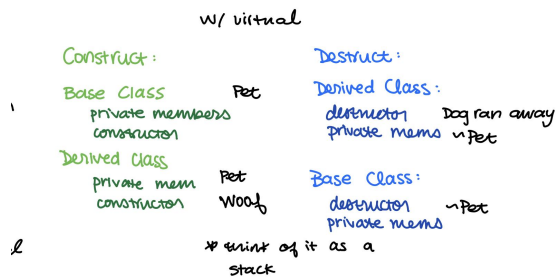 w/ virtual
Construct:
Base Class Pet
private members
constructor
Derived Class
private mem Pet
constructor Woof
Destruct:
Derived Class:
destructor Dog ran away
private mems ~Pet
Base Class:
destructor ~Pet
private mems
* think of it as a
stack